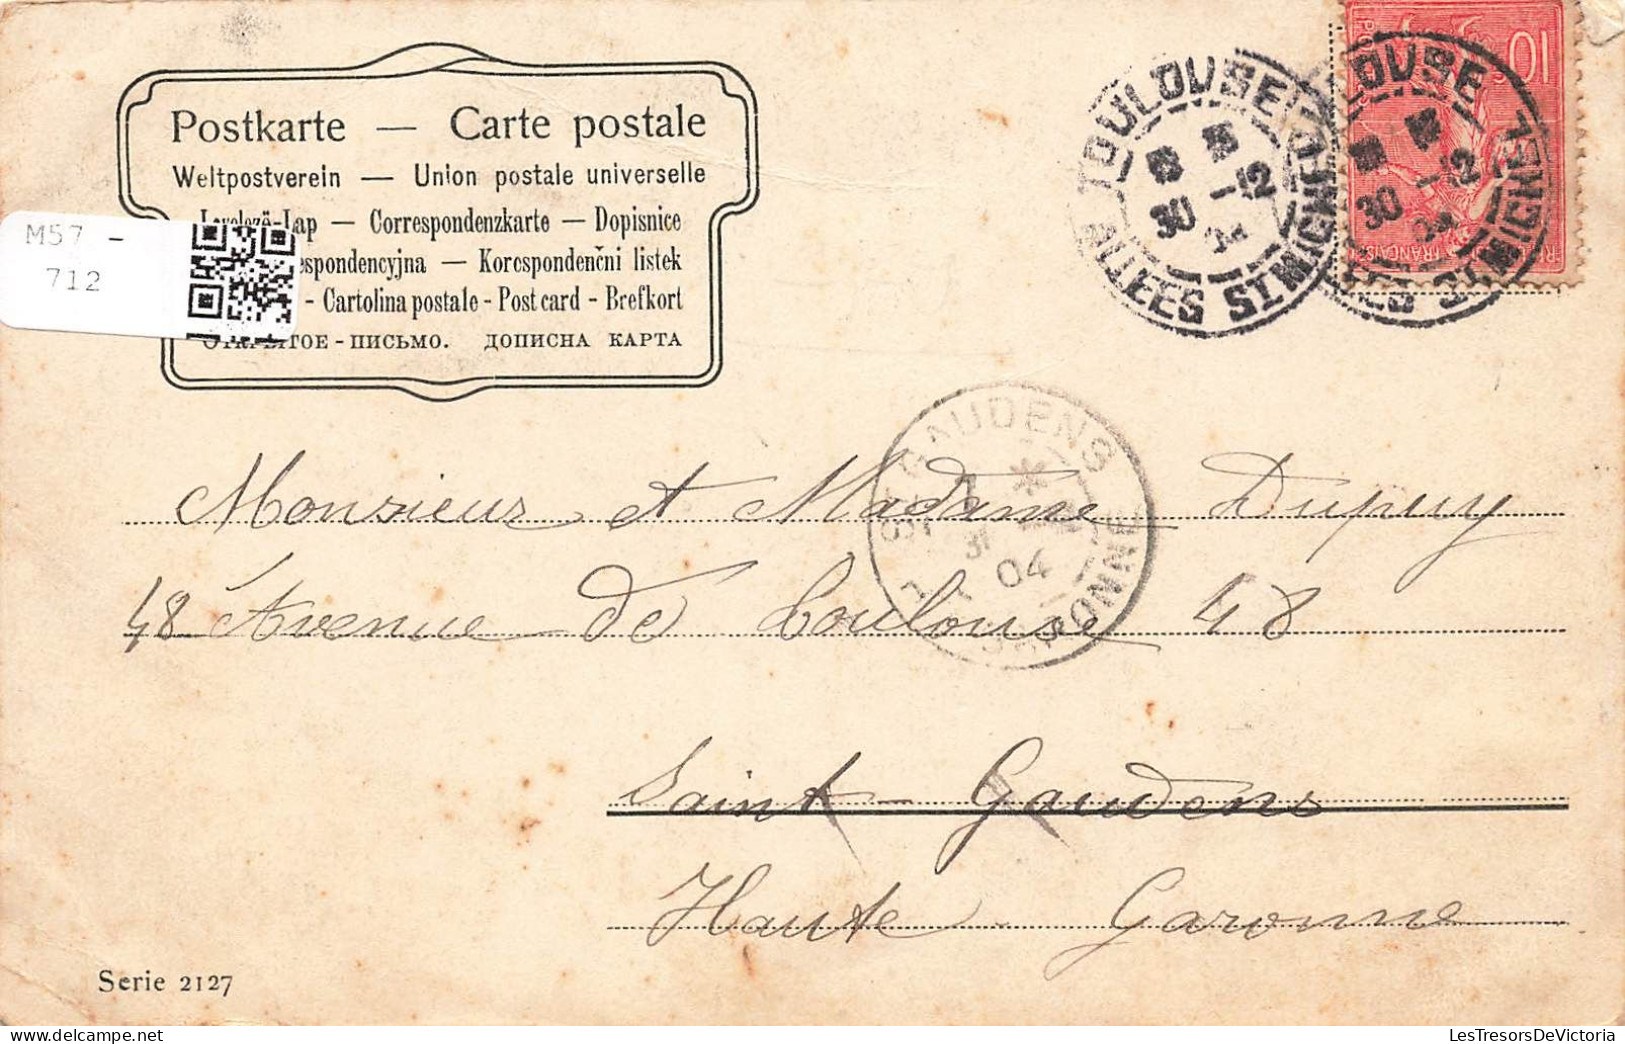 Postkarte — Carte postale
Weltpostverein — Union postale universelle
Lap — Correspondenzkarte — Dopisnice
espondencyjna — Korespondenční lístek
- Cartolina postale - Post card - Brefkort
ОТКРЫТОЕ - ПИСЬМО. ДОПИСНА КАРТА
M57 -
712
TOULOUSE
30 - 12
04
ALLEES ST MICHEL
TOULOUSE
30 - 12
04
ALLEES ST MICHEL
10
FRANÇAISE
ST GAUDENS
31
04
GARONNE
Monsieur et Madame Dupuy
48 Avenue de Toulouse 48
Saint-Gaudens
Haute Garonne
Serie 2127
LesTresorsDeVictoria